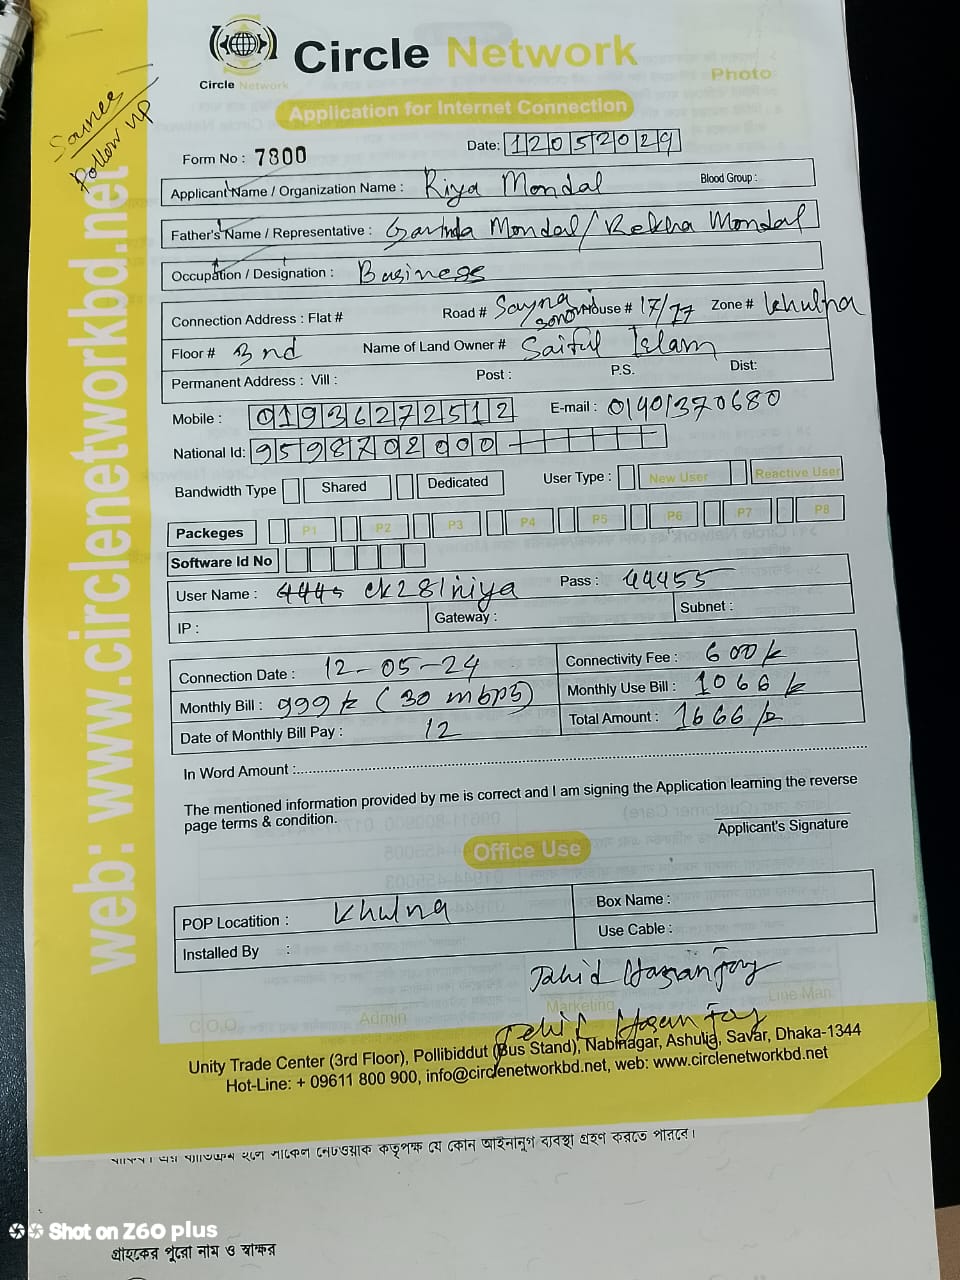 Circle Network
Circle Network
Photo
Application for Internet Connection
Follow up
Form No : 7800
Date: 12052029
Applicant Name / Organization Name : Riya Mondal Blood Group :
Father's Name / Representative : Mondal / Rekha Mondal
Occupation / Designation : Business
Connection Address : Flat # Road # House # 17/77 Zone # Khulna
Floor # 3nd Name of Land Owner # Saiful Islam
Permanent Address : Vill : Post : P.S. Dist:
Mobile : 01936272512 E-mail : 01401370680
National Id: 9598702000
Bandwidth Type Shared Dedicated User Type : New User Reactive User
Packeges P1 P2 P3 P4 P5 P6 P7 P8
Software Id No
User Name : Pass : 44455
IP : Gateway : Subnet :
Connection Date : 12-05-24 Connectivity Fee : 600 tk
Monthly Bill : 999 tk (30 mbps) Monthly Use Bill : 1066 tk
Date of Monthly Bill Pay : 12 Total Amount : 1666 tk
In Word Amount :
The mentioned information provided by me is correct and I am signing the Application learning the reverse
page terms & condition.
Applicant's Signature
Office Use
POP Locatition : Khulna Box Name :
Installed By : Use Cable :
Jahid Hasan Joy
C.O.O Admin Marketing Line Man
Jahid Hasan Joy
Unity Trade Center (3rd Floor), Pollibiddut (Bus Stand), Nabinagar, Ashulia, Savar, Dhaka-1344
Hot-Line: + 09611 800 900, info@circlenetworkbd.net, web: www.circlenetworkbd.net
web: www.circlenetworkbd.net
হলে সার্কেল নেটওয়াক কতৃপক্ষ যে কোন আইনানুগ ব্যবস্থা গ্রহণ করতে পারবে।
Shot on Z60 plus
গ্রাহকের পুরো নাম ও স্বাক্ষর